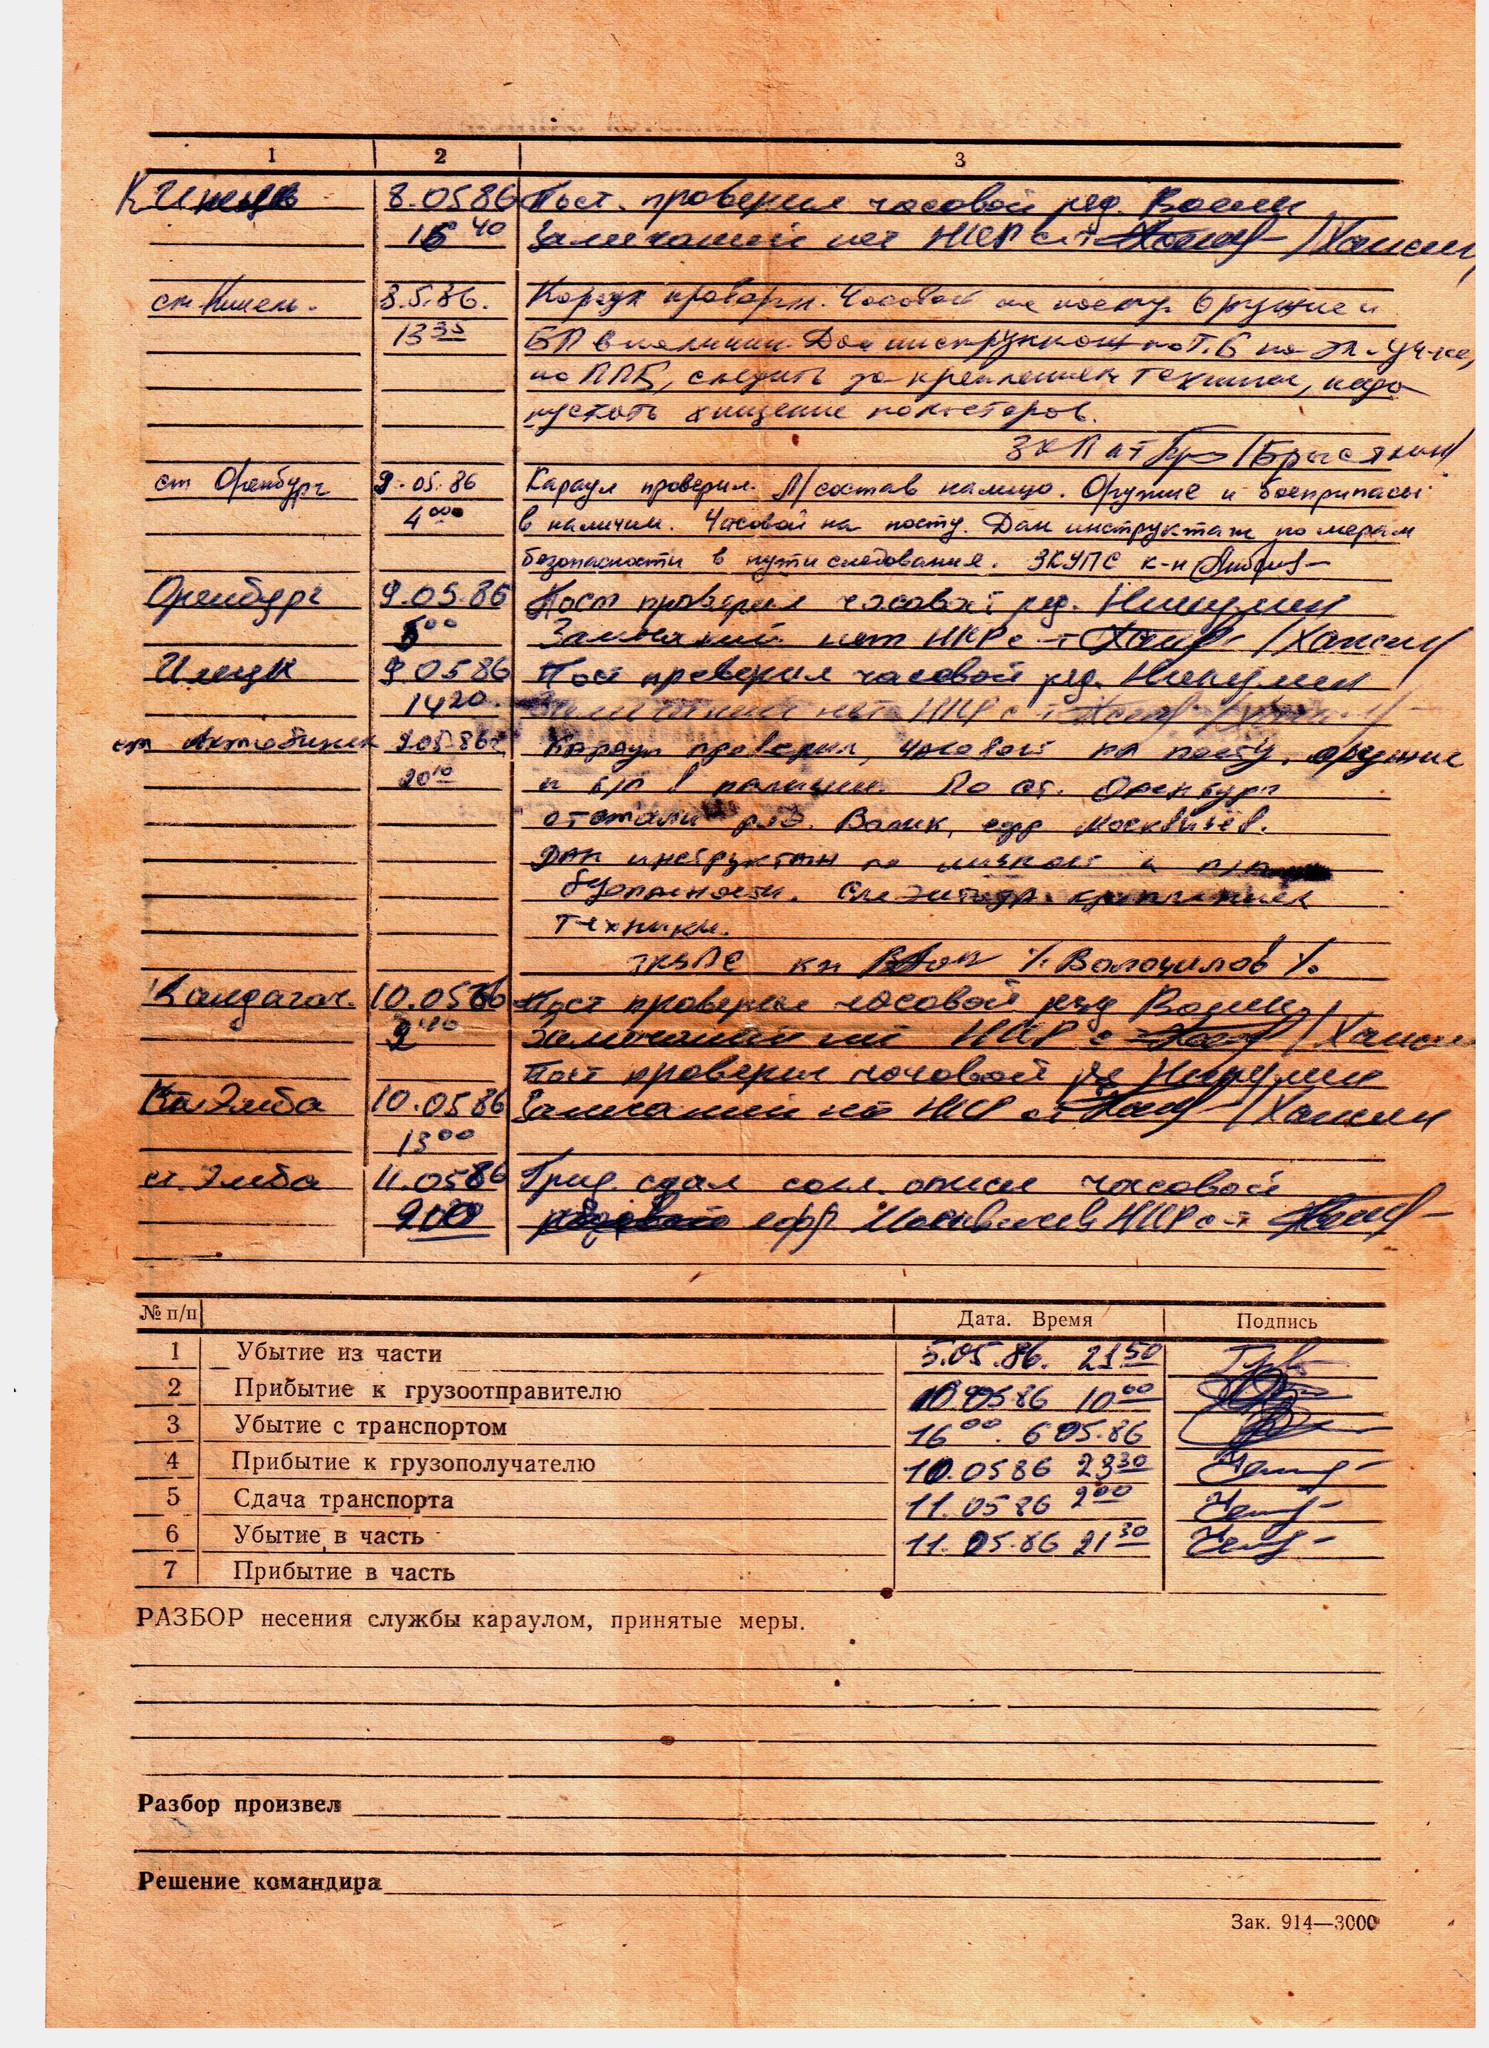 1 2 3
Кинель 8.05 86 Пост проверил часовой ряд. Волик
16 40 Замечаний нет НКР с-т /Хансин
ст. Кинель. 8.5.86. Караул проверен. Часовой на посту. Оружие и
13 35 БП в наличии. Дан инструктаж по Т.Б на эл. уч-ке,
по ППБ, следить за креплением техники, недо
пускать хищение
ЗКП ст /Брысякин/
ст Оренбург 9.05.86 Караул проверил. Л/состав налицо. Оружие и боеприпасы
4 00 в наличии. Часовой на посту. Дан инструктаж по мерам
безопасности в пути следования. ЗКУПС к-н
Оренбург 9.05.86 Пост проверил часовой ряд. Никулин
5 00 Замечаний нет НКР с-т /Хансин
Илецк 9 05 86 Пост проверил часовой ряд. Никулин
14 20 Замечаний нет НКР с-т
ст Актюбинск 9.05.86г. Караул проверил, часовой на посту, оружие
20 10 и б/п в наличии. По ст. Оренбург
отстали ряд. Волик, ефр Москвичёв.
Дан инструктаж по личной и
безопасности. Следить за креплением
техники.
ЗКУПС к-н /Волошилов/
Кандагач. 10.05 86 Пост проверил часовой ряд Волик
9 Замечаний нет НКР с-т /Хансин
Пост проверил часовой ряд Никулин
Эмба 10.05 86 Замечаний нет НКР с-т /Хансин
13 00
ст. Эмба 11.05 86 Груз сдал согл. описи часовой
2 00 ефр Москвичев НКР с-т
№ п/п Дата. Время Подпись
1 Убытие из части 5.05.86. 21 50
2 Прибытие к грузоотправителю 05 86 10 00
3 Убытие с транспортом 16 00. 6 05.86
4 Прибытие к грузополучателю 10.05 86 23 30
5 Сдача транспорта 11.05 86 2 00
6 Убытие в часть 11.05.86 21 30
7 Прибытие в часть
РАЗБОР несения службы караулом, принятые меры.
Разбор произвел
Решение командира
Зак. 914—3000